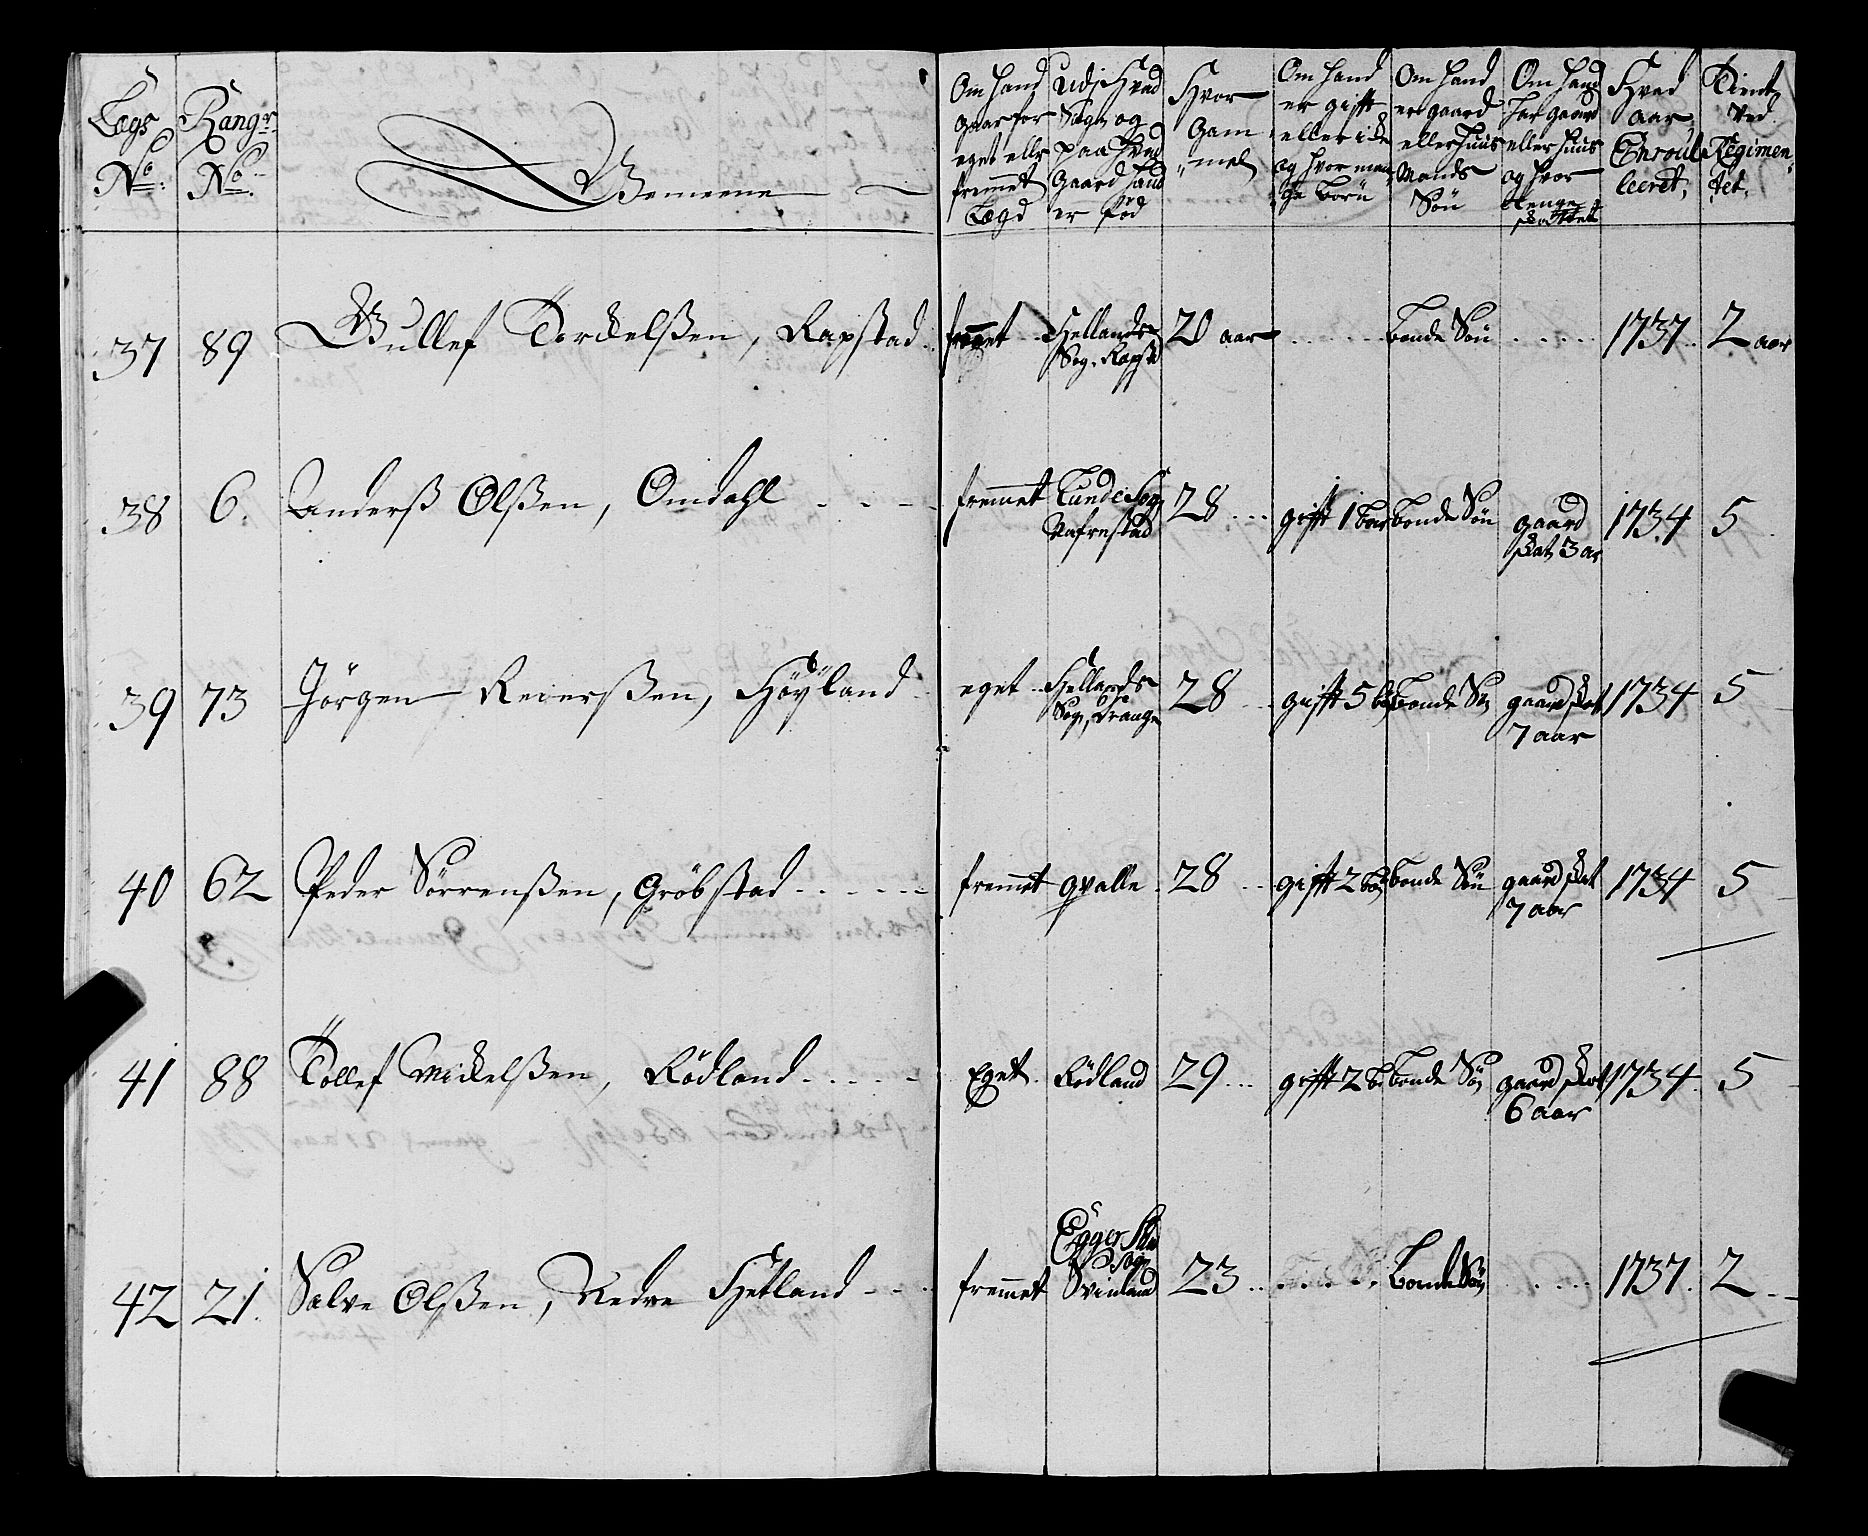 Lægs No: Rangr No. Gemeene Om hand gaar for eget eller fremmet Lægd Udj Hvad Sogn og paa Hvad Gaard hand er fød Hvor Gammel Om hand er gifft eller icke og hvor mange börn Om hand er gaard eller Huus Mands Sön Om hand har gaard eller huus og hvor lenge skattet Hvad aar Enroulleeret, Tient ved Regimentet.
37 89 Gullef Torckelsßen, Rapstad fremmet Hellands Sog. Rapst 20 aar bonde Sön 1737. 2 aar
38 6. Anderß Olßen, Omdahl fremmet Lunde Sogn 28 gifft 1 bar bonde Sön gaard skat 3 ar 1734 5
39 73 Jörgen Reierßen, Höÿland eget Hellands Sogn, Drange 28 gifft 5 bö bonde Sön gaard skat 7 aar 1734 5
40 62 Peder Sörrenßen, Gröbstad fremmet qvalle 28 gifft 2 bö bonde Sön gaard skat 7 aar 1734 5
41 88 Tollef Mickelßen, Rödland Eget Rödland 29 gifft 2 b bonde Sön gaard skat 6 aar 1734. 5
42 21. Salve Olßen, Nedre Hetland fremmet Eggersunds Sogn Svinland 23 Bonde Sön 1737. 2